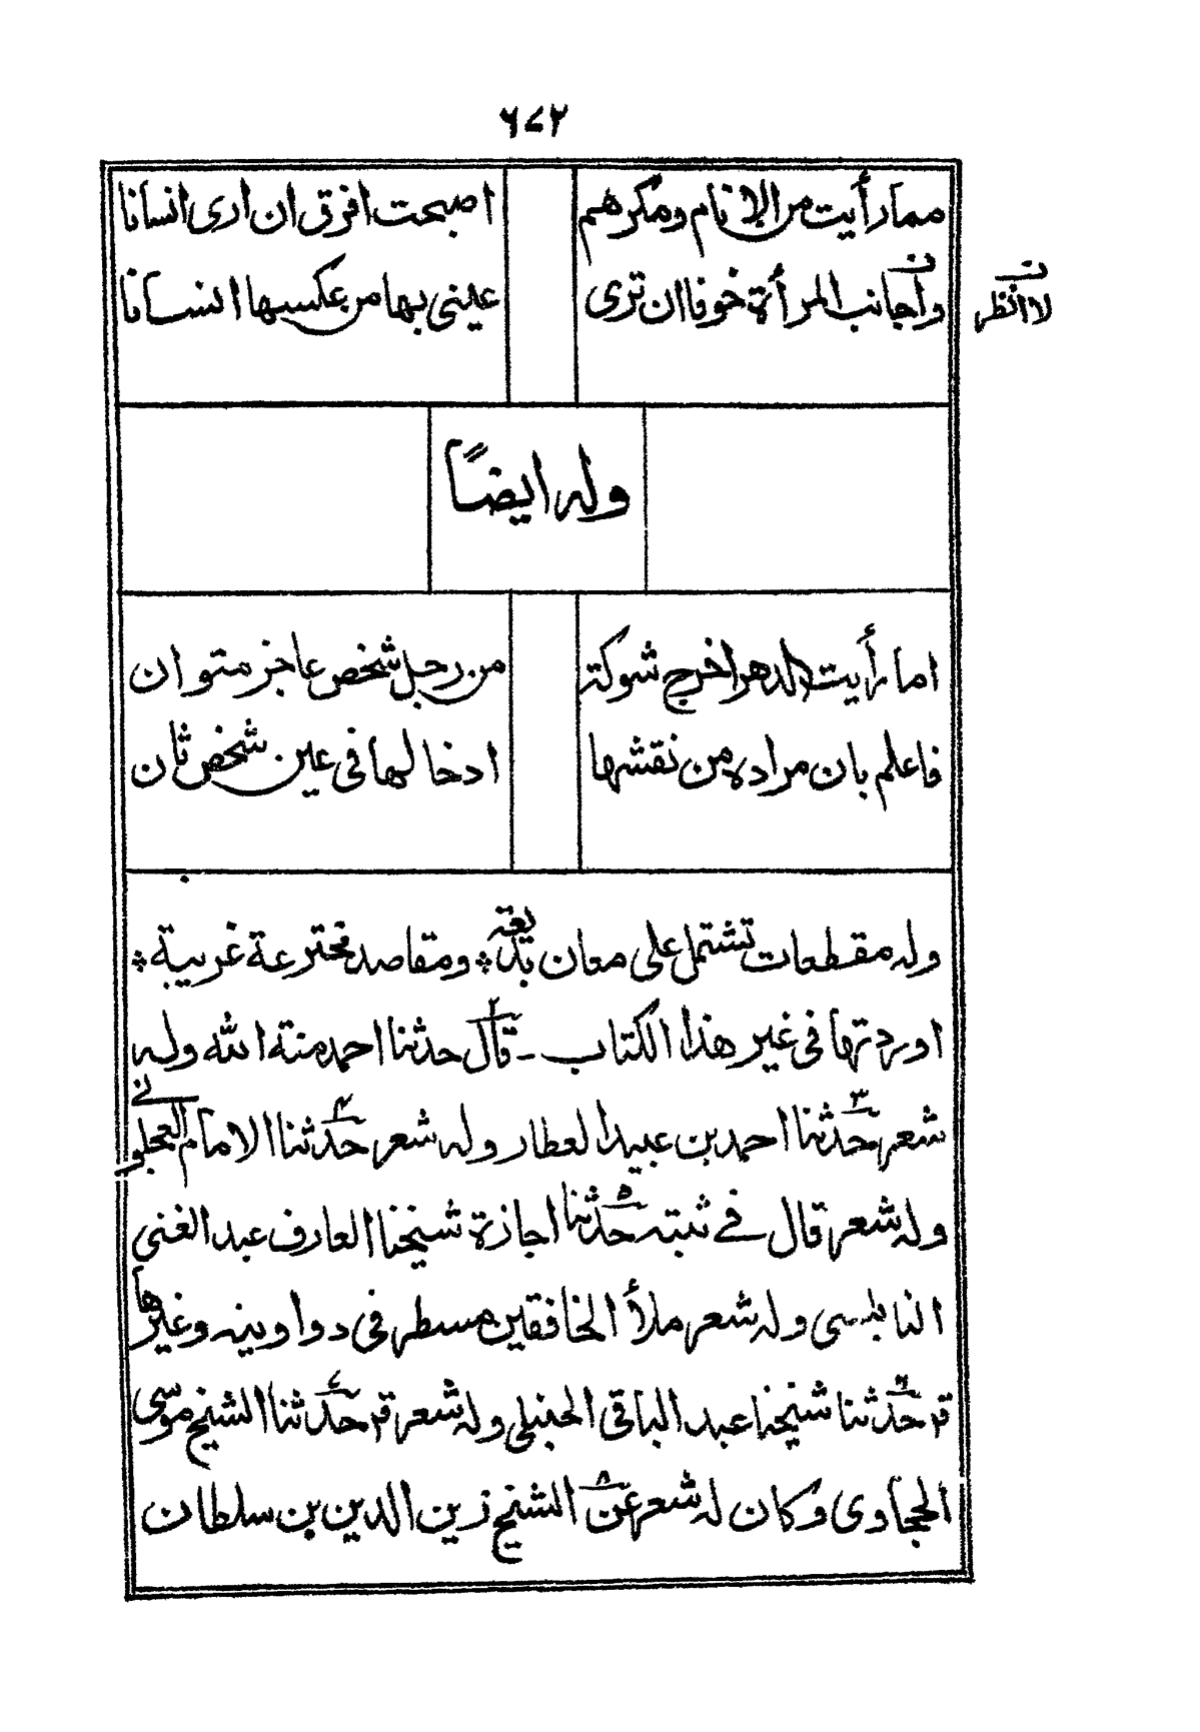 ٦٧٢
مما رأيت من الانام ومكرهم اصبحت افرق ان ارى انسانا
وأجانب المرأة خوفا ان ترى عيني بها من عكسها انسانا
ن
لا انظر
وله ايضاً
اما رأيت الدهر اخرج شوكة من رجل شخص عاجز متوان
فاعلم بان مراده من نقشها ادخالها في عين شخص ثان
وله مقطعات تشتمل على معان بديعة ؞ ومقاصد مخترعة غريبة ؞
اوردتها في غير هذا الكتاب ـ قال حدثنا احمد منة الله وله
شعر حدثنا احمد بن عبيد العطار وله شعر حدثنا الامام العجلوني
وله شعر قال في ثبته حدثنا اجازة شيخنا العارف عبد الغني
النابلسي وله شعر ملأ الخافقين مسطر في دواوينه وغيرها
قه حدثنا شيخنا عبد الباقي الحنبلي وله شعر قه حدثنا الشيخ موسى
الحجاوي وكان له شعر عن الشيخ زين الدين بن سلطان